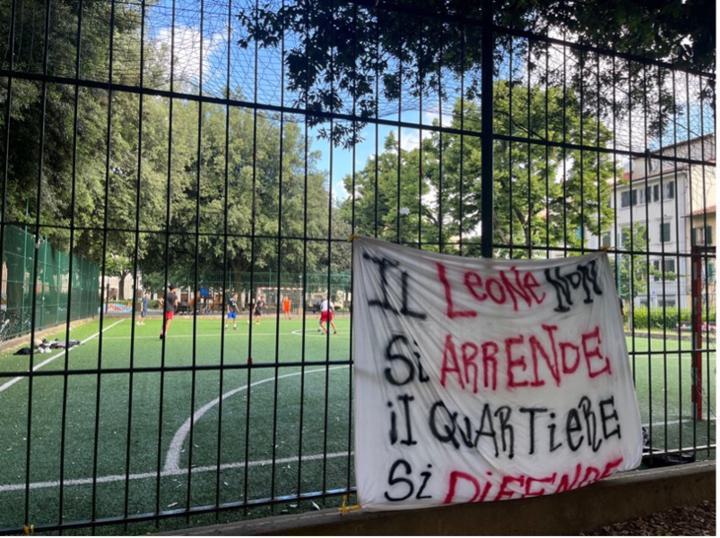 IL LeoNe NoN
Si ARRENDE
iL QUARTiERE
Si DIFENDE